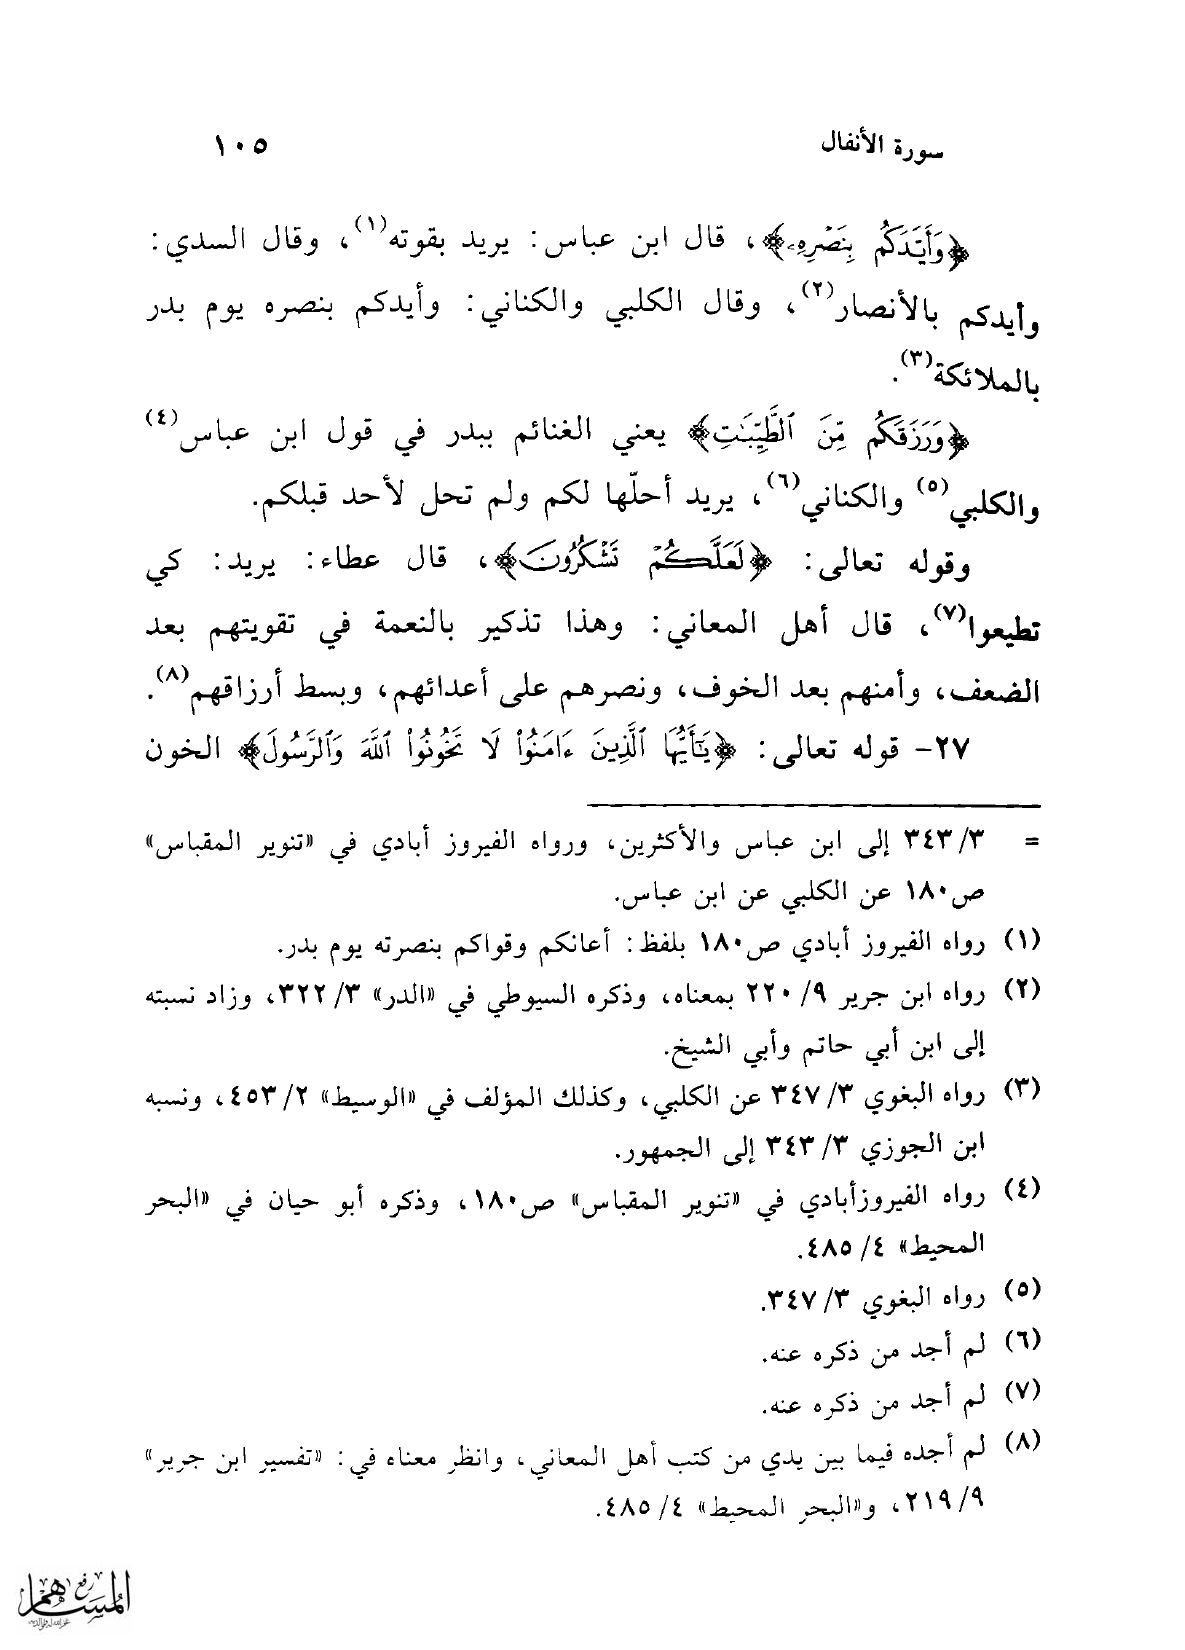 سورة الأنفال ١٠٥
﴿وَأَيَّدَكُم بِنَصْرِهِۦ﴾، قال ابن عباس: يريد بقوته(١)، وقال السدي:
وأيدكم بالأنصار(٢)، وقال الكلبي والكناني: وأيدكم بنصره يوم بدر
بالملائكة(٣).
﴿وَرَزَقَكُم مِّنَ ٱلطَّيِّبَٰتِ﴾ يعني الغنائم ببدر في قول ابن عباس(٤)
والكلبي(٥) والكناني(٦)، يريد أحلّها لكم ولم تحل لأحد قبلكم.
وقوله تعالى: ﴿لَعَلَّكُمْ تَشْكُرُونَ﴾، قال عطاء: يريد: كي
تطيعوا(٧)، قال أهل المعاني: وهذا تذكير بالنعمة في تقويتهم بعد
الضعف، وأمنهم بعد الخوف، ونصرهم على أعدائهم، وبسط أرزاقهم(٨).
٢٧- قوله تعالى: ﴿يَٰٓأَيُّهَا ٱلَّذِينَ ءَامَنُوا۟ لَا تَخُونُوا۟ ٱللَّهَ وَٱلرَّسُولَ﴾ الخون
= ٣/ ٣٤٣ إلى ابن عباس والأكثرين، ورواه الفيروز أبادي في «تنوير المقباس»
ص١٨٠ عن الكلبي عن ابن عباس.
(١) رواه الفيروز أبادي ص١٨٠ بلفظ: أعانكم وقواكم بنصرته يوم بدر.
(٢) رواه ابن جرير ٩/ ٢٢٠ بمعناه، وذكره السيوطي في «الدر» ٣/ ٣٢٢، وزاد نسبته
إلى ابن أبي حاتم وأبي الشيخ.
(٣) رواه البغوي ٣/ ٣٤٧ عن الكلبي، وكذلك المؤلف في «الوسيط» ٢/ ٤٥٣، ونسبه
ابن الجوزي ٣/ ٣٤٣ إلى الجمهور.
(٤) رواه الفيروزأبادي في «تنوير المقباس» ص١٨٠، وذكره أبو حيان في «البحر
المحيط» ٤/ ٤٨٥.
(٥) رواه البغوي ٣/ ٣٤٧.
(٦) لم أجد من ذكره عنه.
(٧) لم أجد من ذكره عنه.
(٨) لم أجده فيما بين يدي من كتب أهل المعاني، وانظر معناه في: «تفسير ابن جرير»
٩/ ٢١٩، و«البحر المحيط» ٤/ ٤٨٥.
رفع
المساهم